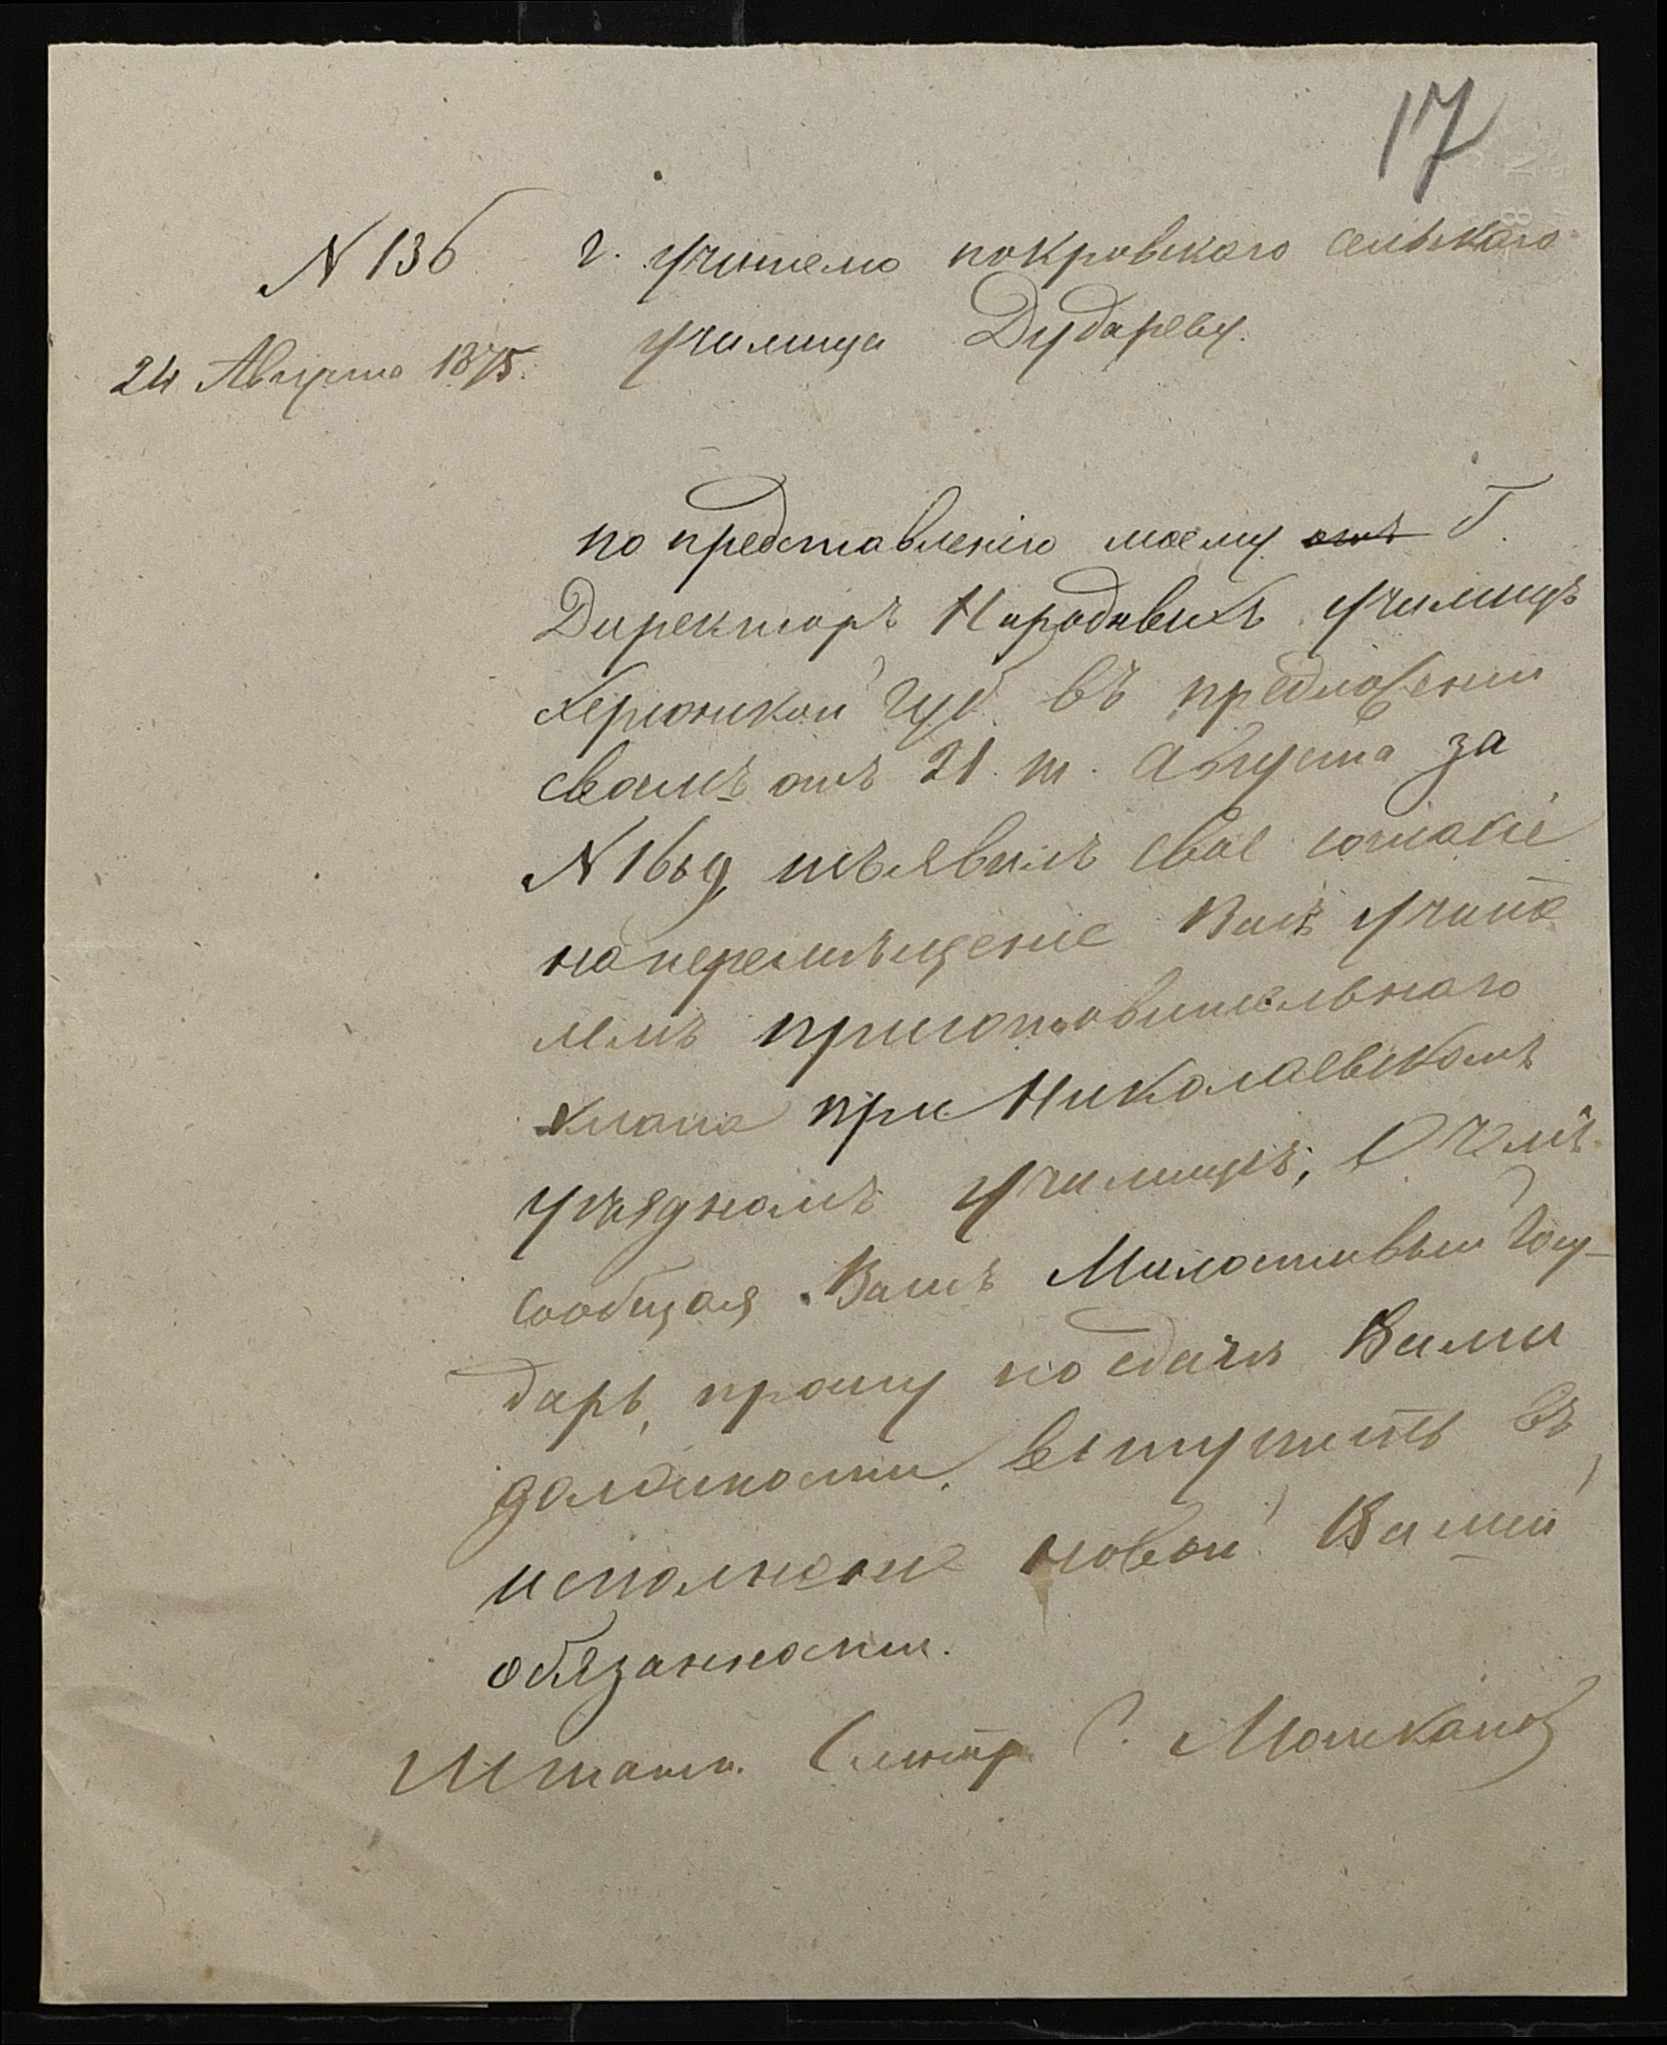 17
N 136 г. Учителю покровскаго сельскаго
24 Августа 1875. училища Дудареву.
по представленію моему отъ Г.
Директоръ Народныхъ училищъ
Херсонской Губ. въ предложеніи
своемъ отъ 21. т. Августа за
N изъявилъ свое согласіе
на перемѣщеніе Васъ учите
лемъ приготовительнаго
класса при Николаевскомъ
уѣздномъ училищѣ, О чемъ
сообщая Вамъ Милостивый Госу-
дарь, прошу по сдачѣ Вами
должности, вступить въ
исполненіе новой Вашей
обязанности.
Штатн. Смотр. С.